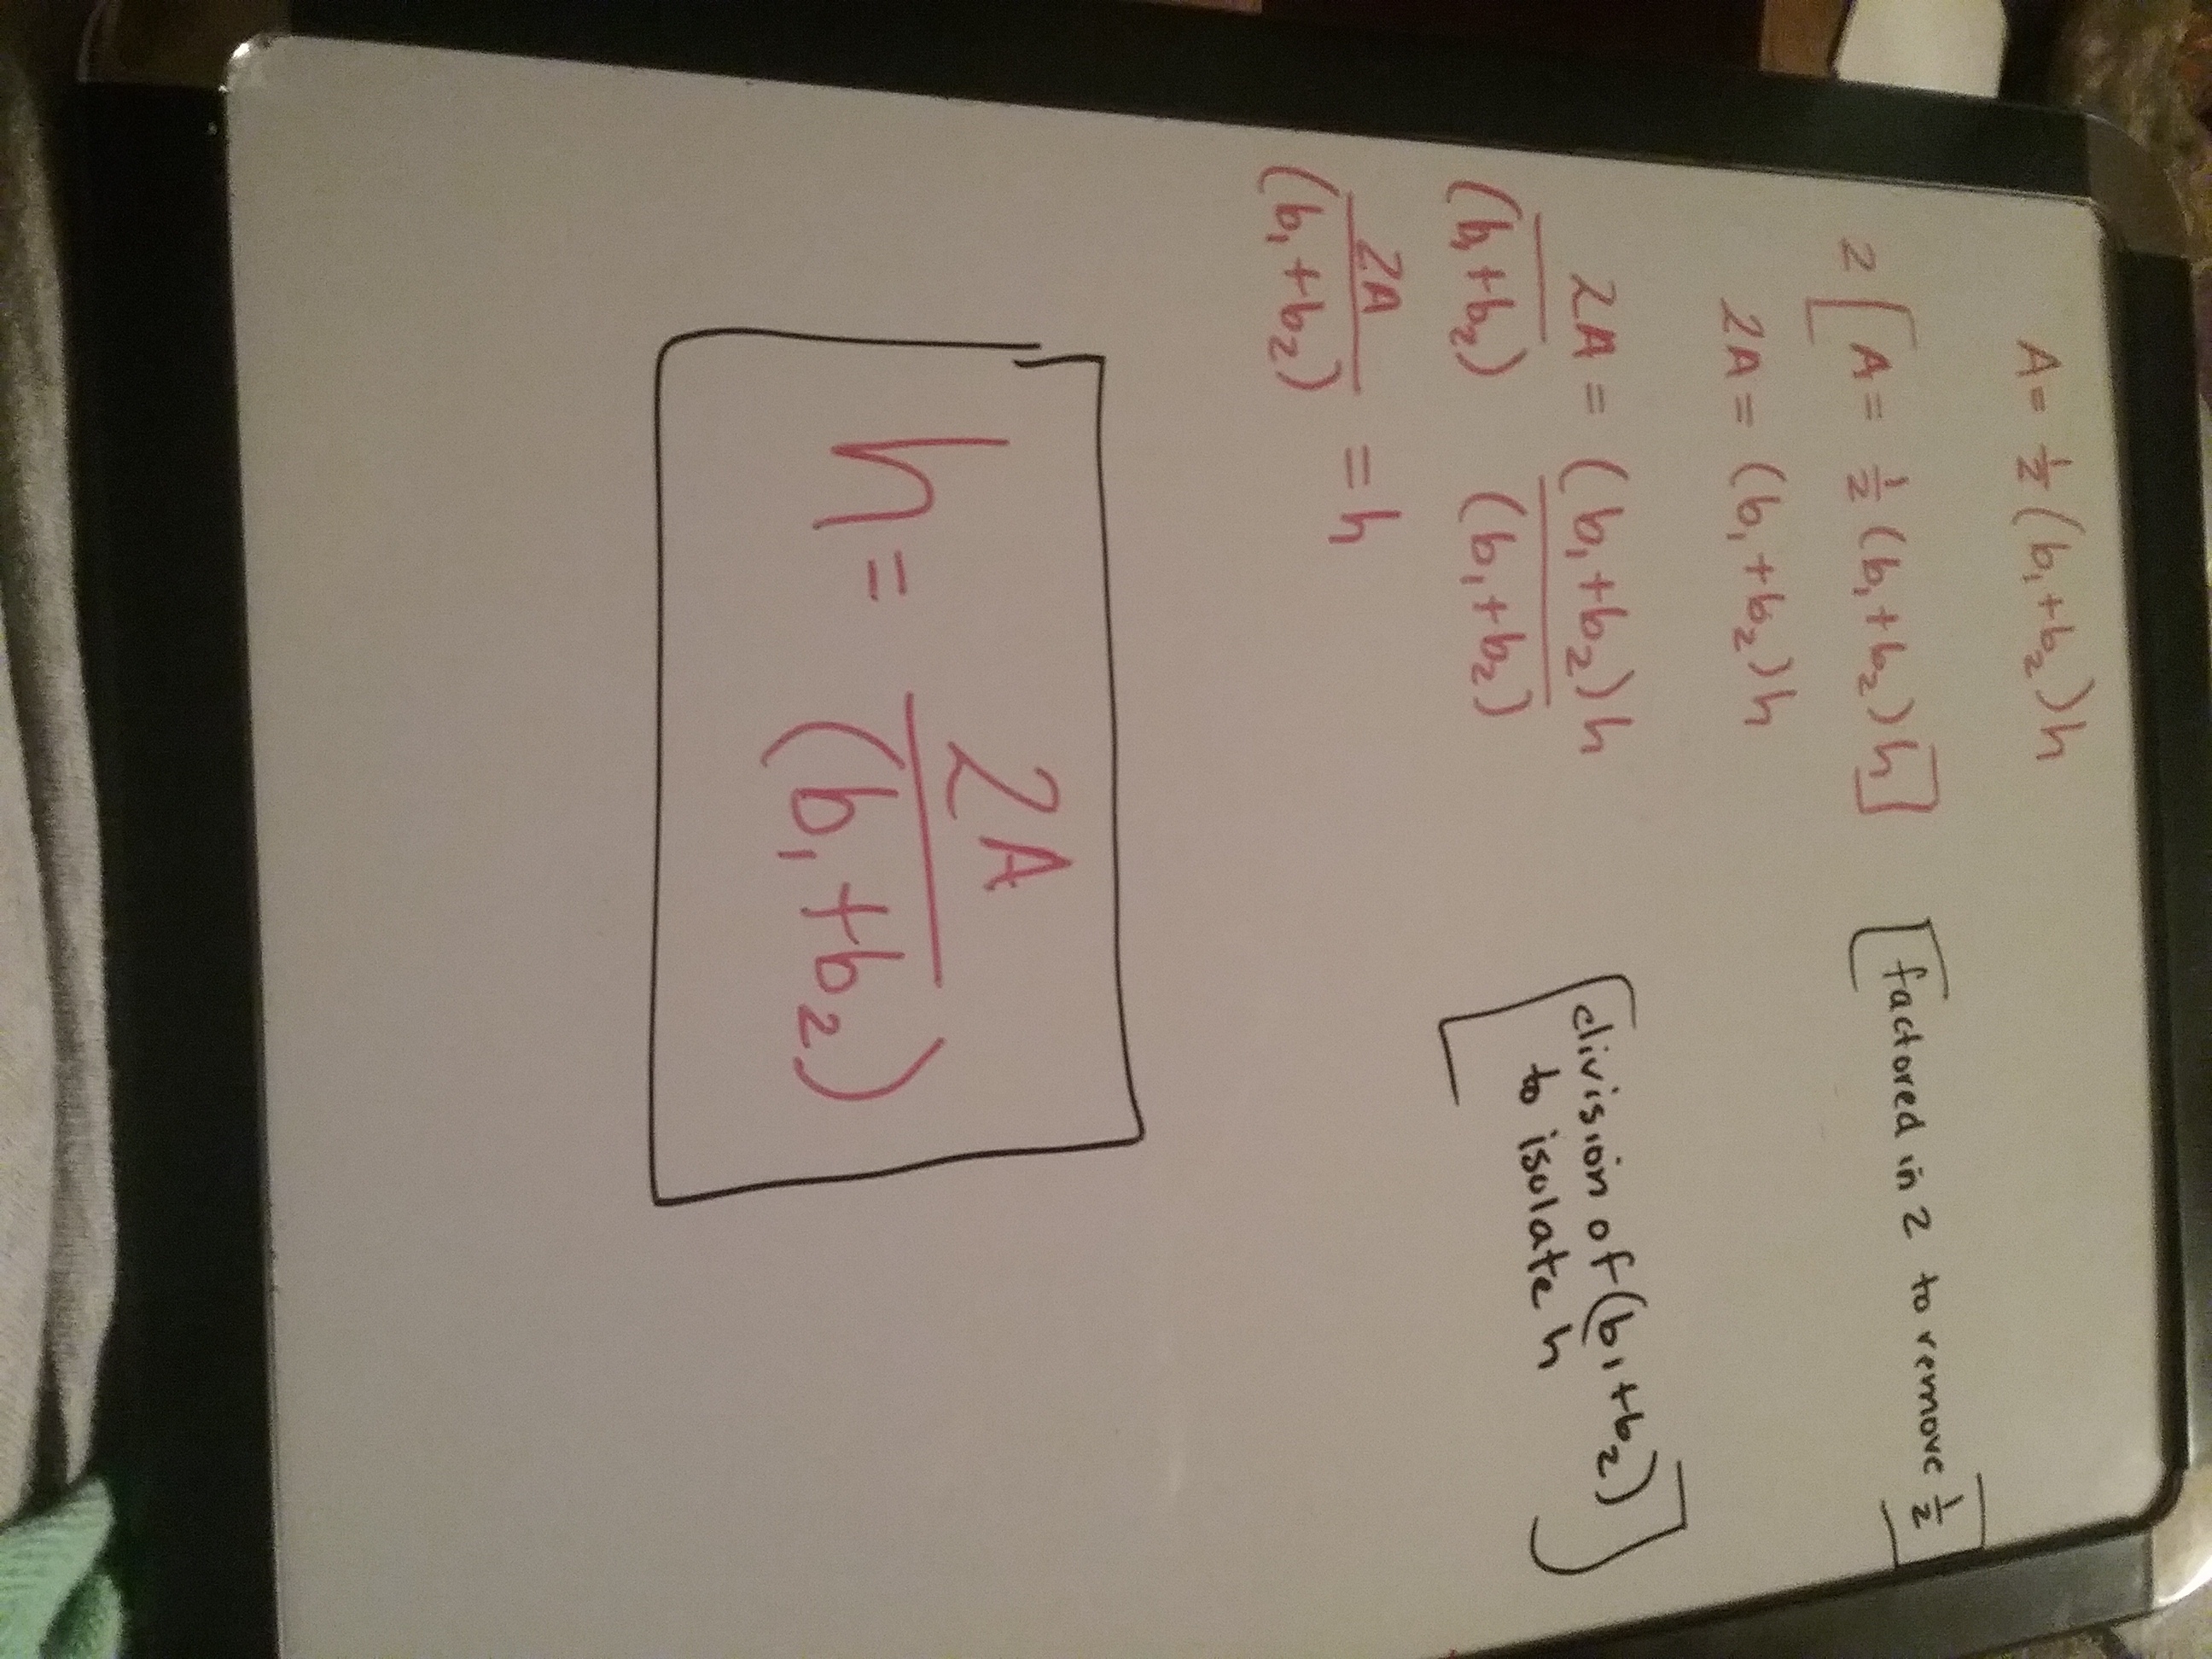 A = 1/2 (b₁+b₂)h
2[A = 1/2 (b₁+b₂)h] [factored in 2 to remove 1/2]
2A = (b₁+b₂)h
2A = (b₁+b₂)h [division of (b₁+b₂)
(b₁+b₂) (b₁+b₂) to isolate h]
2A
(b₁+b₂) = h
h = 2A
(b₁+b₂)